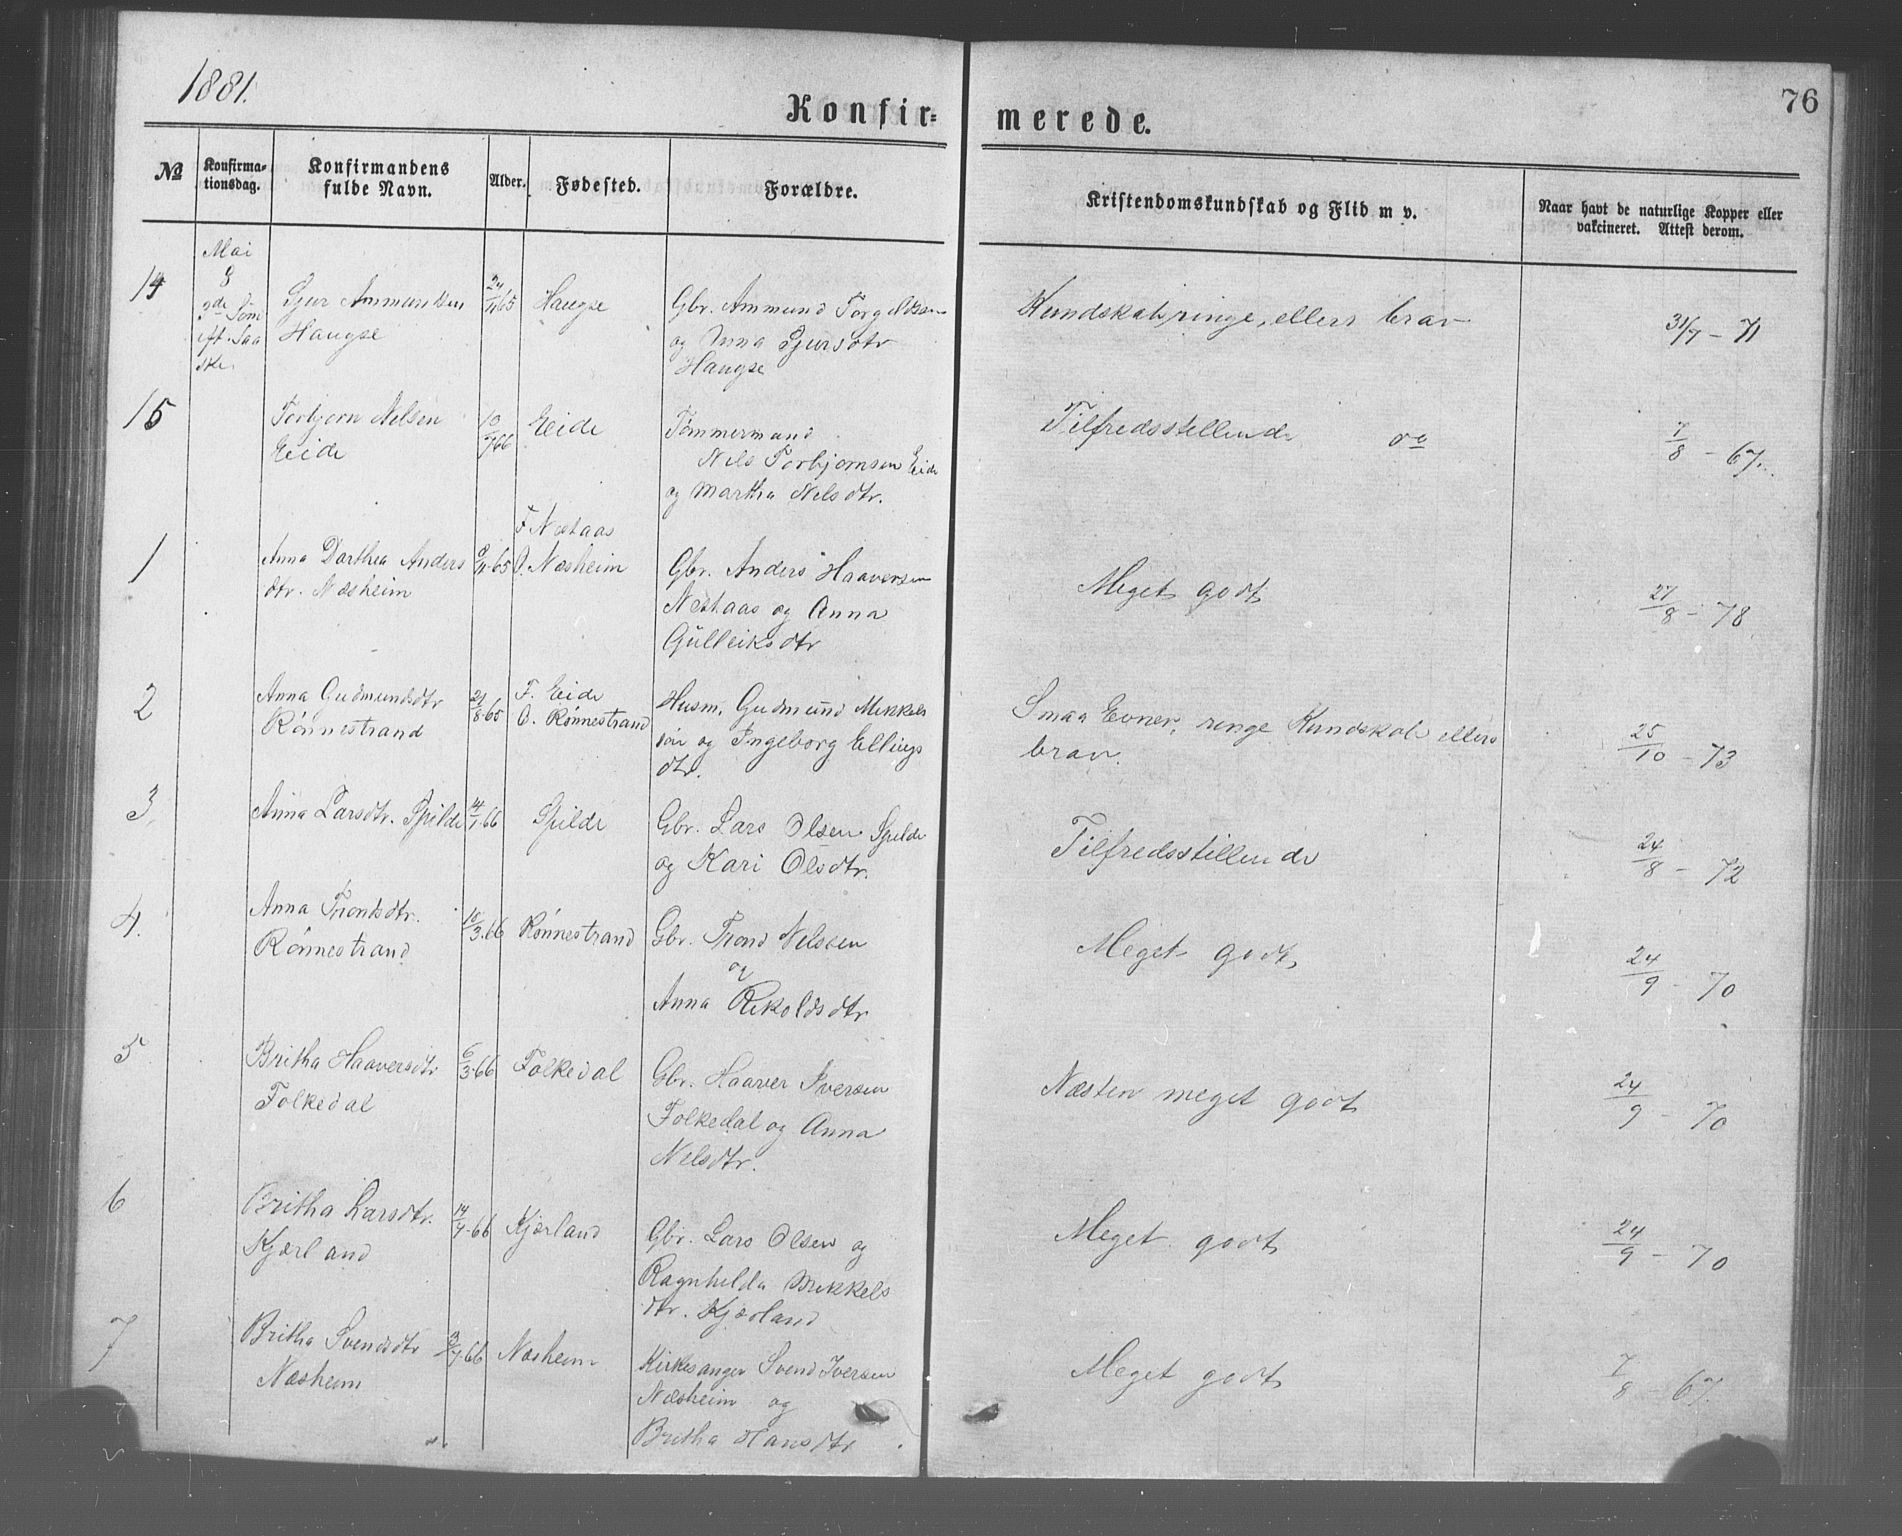 1881.
76
Konfir=
merede.
No
Konfirma=
tionsdag.
Konfirmandens
fulde Navn.
Alder.
Fødested.
Forældre.
Kristendomskundskab og Flid m v.
Naar havt de naturlige Kopper eller
vakcineret. Attest derom.
Mai
8
2de Søn
eft. Paa
ske.
14
Sjur Ammundsen
Haugse
24/11 65
Haugse
Gbr. Ammund Torgilssen
og Anna Sjursdtr
Haugse
Kundskab ringe, ellers brav
31/7 - 71
15
Torbjorn Nelsen
Eide
10/7 66
Eide
Tømmermand
Nils Torbjornsen Eide
og Martha Nelsdtr.
Tilfredsstillende do
7/8 - 67.
1
Anna Dorthea Anders
dtr. Næsheim
9/11-65
F. Nestaas
O. Næsheim
Gbr. Anders Haaversen
Nestaas og Anna
Gulleiksdtr
Meget godt
27/8 - 78
2
Anna Gudmundsdtr
Rønnestrand
21/8-65
F. Eide
O. Rønnestrand
Husm. Gudmund Mikkels
søn og Ingeborg Ellings
dtr.
Smaa Evner, ringe Kundskab ellers
brav.
25/10 - 73
3
Anna Larsdtr. Spilde
14/1-66
Spilde
Gbr. Lars Olsen Spilde
og Kari Olsdtr.
Tilfredsstillende
24/8 - 72
4.
Anna Trondsdtr.
Rönnestrand
10/3-66
Rønnestrand
Gbr. Trond Nelssen
og
Anna Rikoldsdtr
Meget godt
24/9 - 70
5
Britha Haaversdtr
Folkedal
6/3-66
Folkedal
Gbr. Haaver Iversen
Folkedal og Anna
Nelsdtr.
Næsten meget godt
24/9 - 70
6
Britha Larsdtr.
Kjærland
14/4-66
Kjærland
Gbr. Lars Olsen og
Ragnhilda Mikkels
dtr. Kjærland
Meget godt
24/9 - 70
7
Britha Svendsdtr
Næsheim
7-66
Næsheim
Kirkesanger Svend Iversen
Næsheim og
Britha Hansdtr
Meget godt
7/8 - 67.